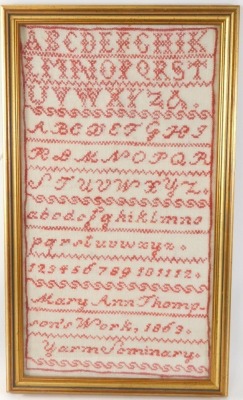 ABCDEFGHIK
LMNOPQRST
UVWXYZ&.
ABCDEFGHI
KLMNOPQR
STUVWXYZ.
abcdefghiklmno
pqrstuvwxyz.
123456789101112.
Mary Ann Thomp
son's Work, 1863.
Yarm Seminary.